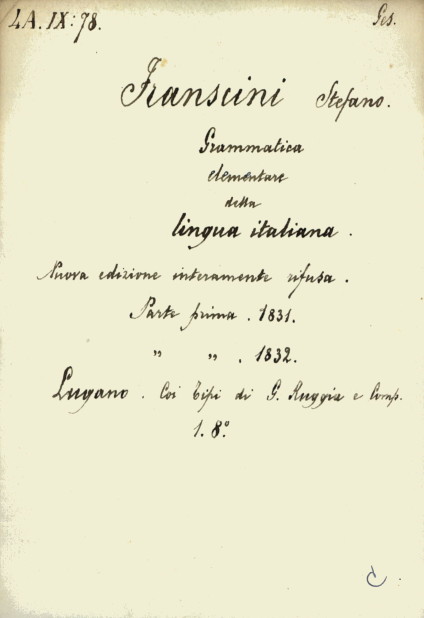 LA. IX: 78. Ges.
Franscini Stefano.
Grammatica
elementare
della
lingua italiana.
Nuova edizione interamente rifusa.
Parte prima. 1831.
" " . 1832.
Lugano. Coi Tipi di G. Ruggia e Comp.
1. 8º
C.